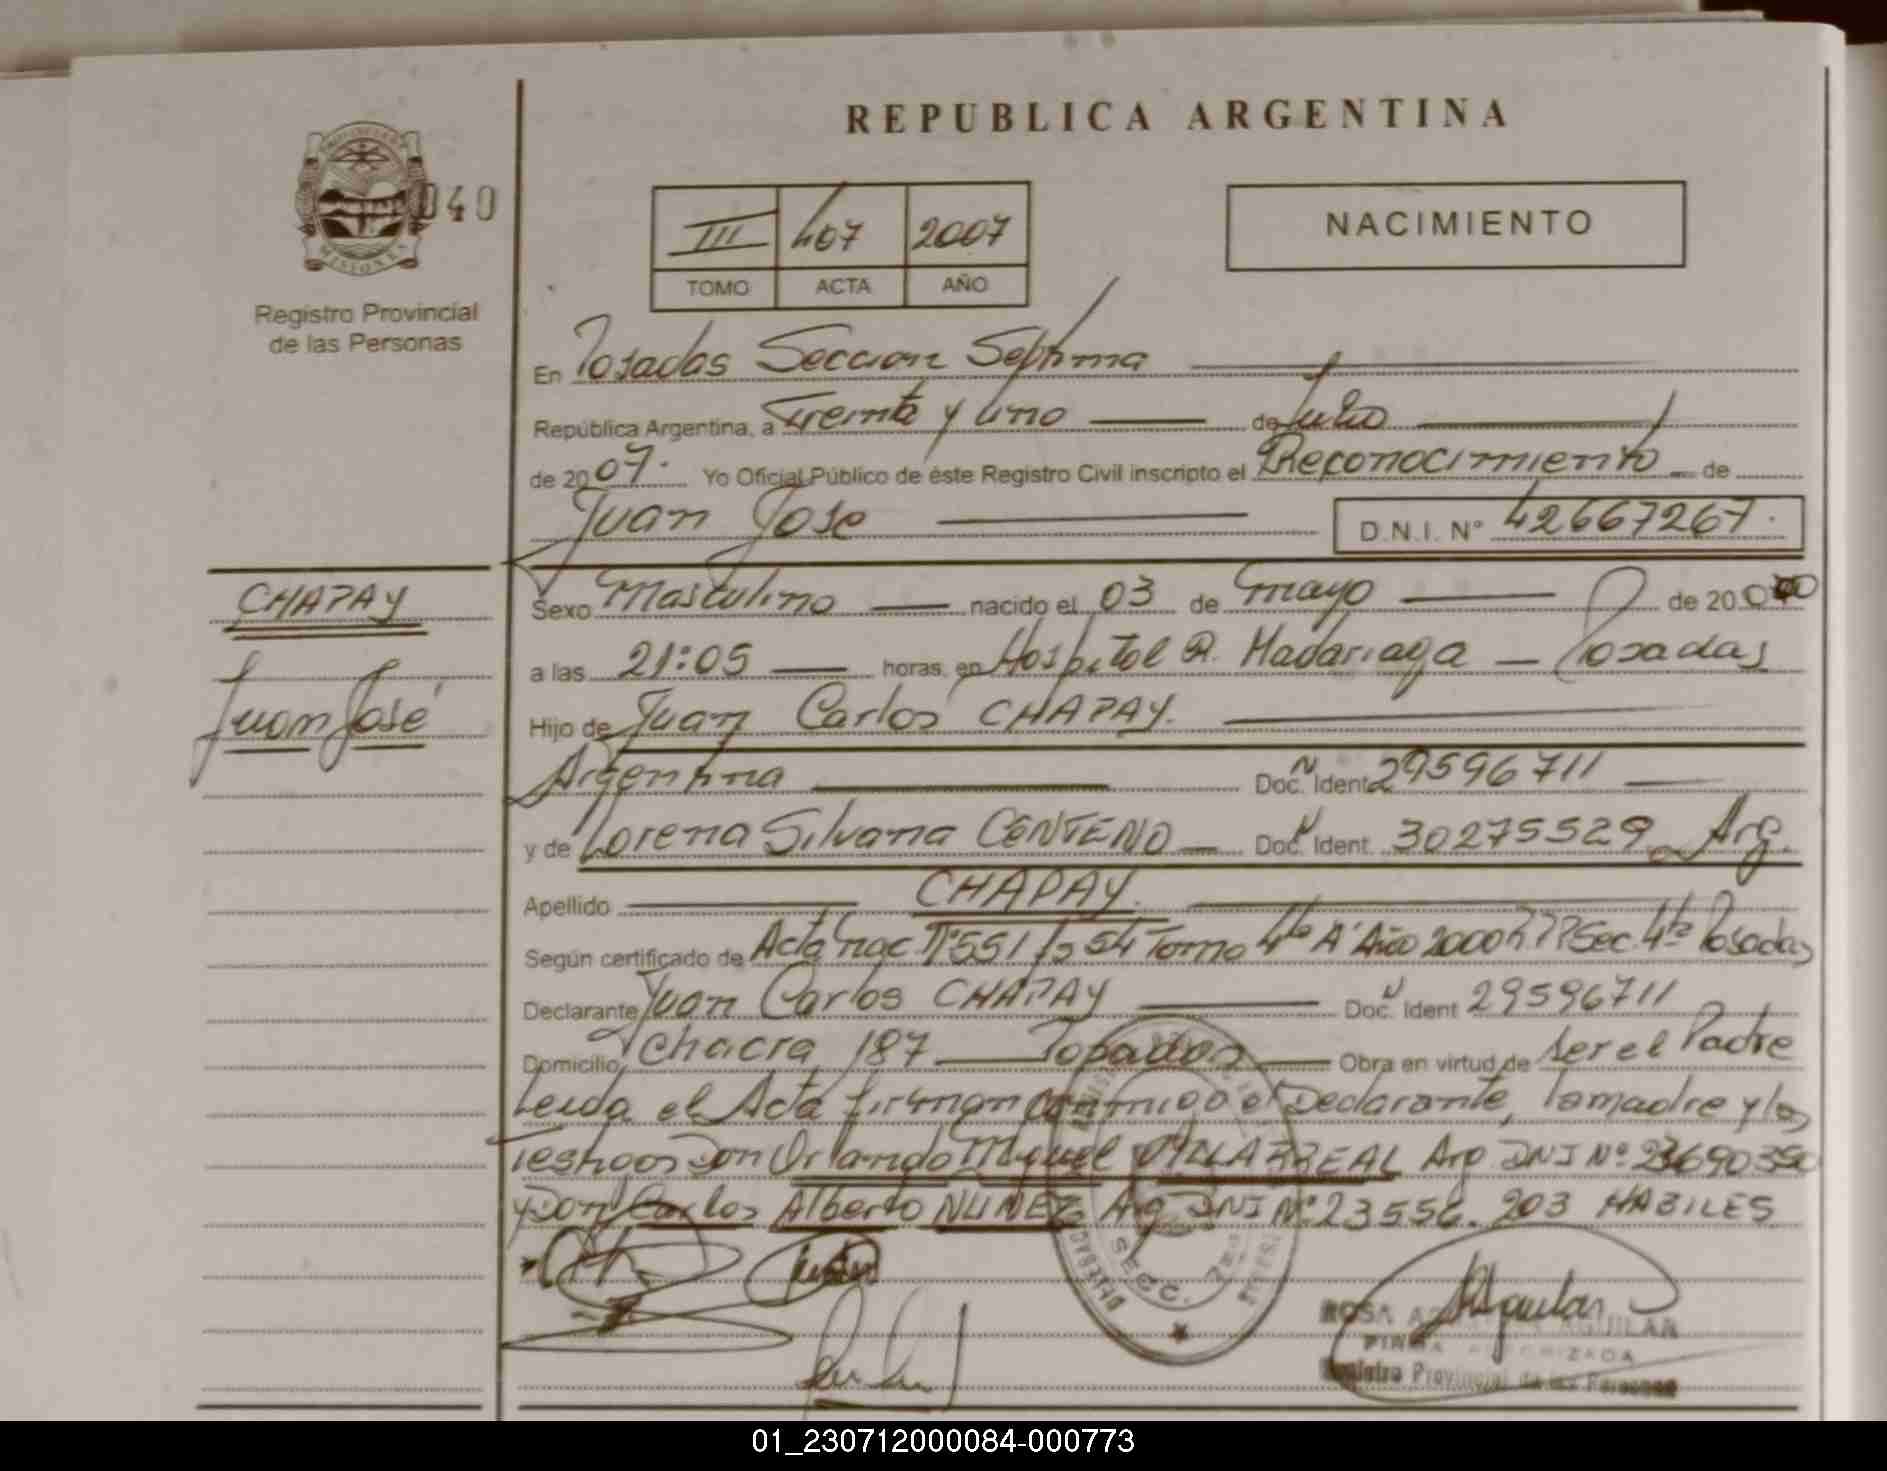 REPUBLICA ARGENTINA
040
MISIONES
Registro Provincial
de las Personas
III 407 2007
TOMO ACTA AÑO
NACIMIENTO
En Posadas Seccion Septima
República Argentina, a Treinta y uno de Julio
de 2007. Yo Oficial Público de éste Registro Civil inscripto el Reconocimiento de
Juan Jose D.N.I. N° 42667267.
CHAPAY
Juan José
Sexo Masculino nacido el 03 de mayo de 2000
a las 21:05 horas, en Hospital R. Madariaga - Posadas
Hijo de Juan Carlos CHAPAY.
Argentina Doc. Ident 29596711
y de Lorena Silvana CENTENO Doc. Ident. 30275529 Arg.
Apellido CHAPAY.
Según certificado de Acta Nac N°551 Fs 54 Tomo 4to A Año 2000 Sec. 4ta Posadas
Declarante Juan Carlos CHAPAY Doc. Ident 29596711
Domicilio Chacra 187 Posadas Obra en virtud de ser el Padre
Leida el Acta firman conmigo el Declarante, la madre y los
Testigos Don Orlando Miguel VILLARREAL Arg DNI N° 23690350
y Don Carlos Alberto NUÑEZ Arg DNI N° 23556.203 HABILES
SECC.
Aguilar
ROSA AGUILAR
FIRMA AUTORIZADA
Registro Provincial de las Personas
01_230712000084-000773